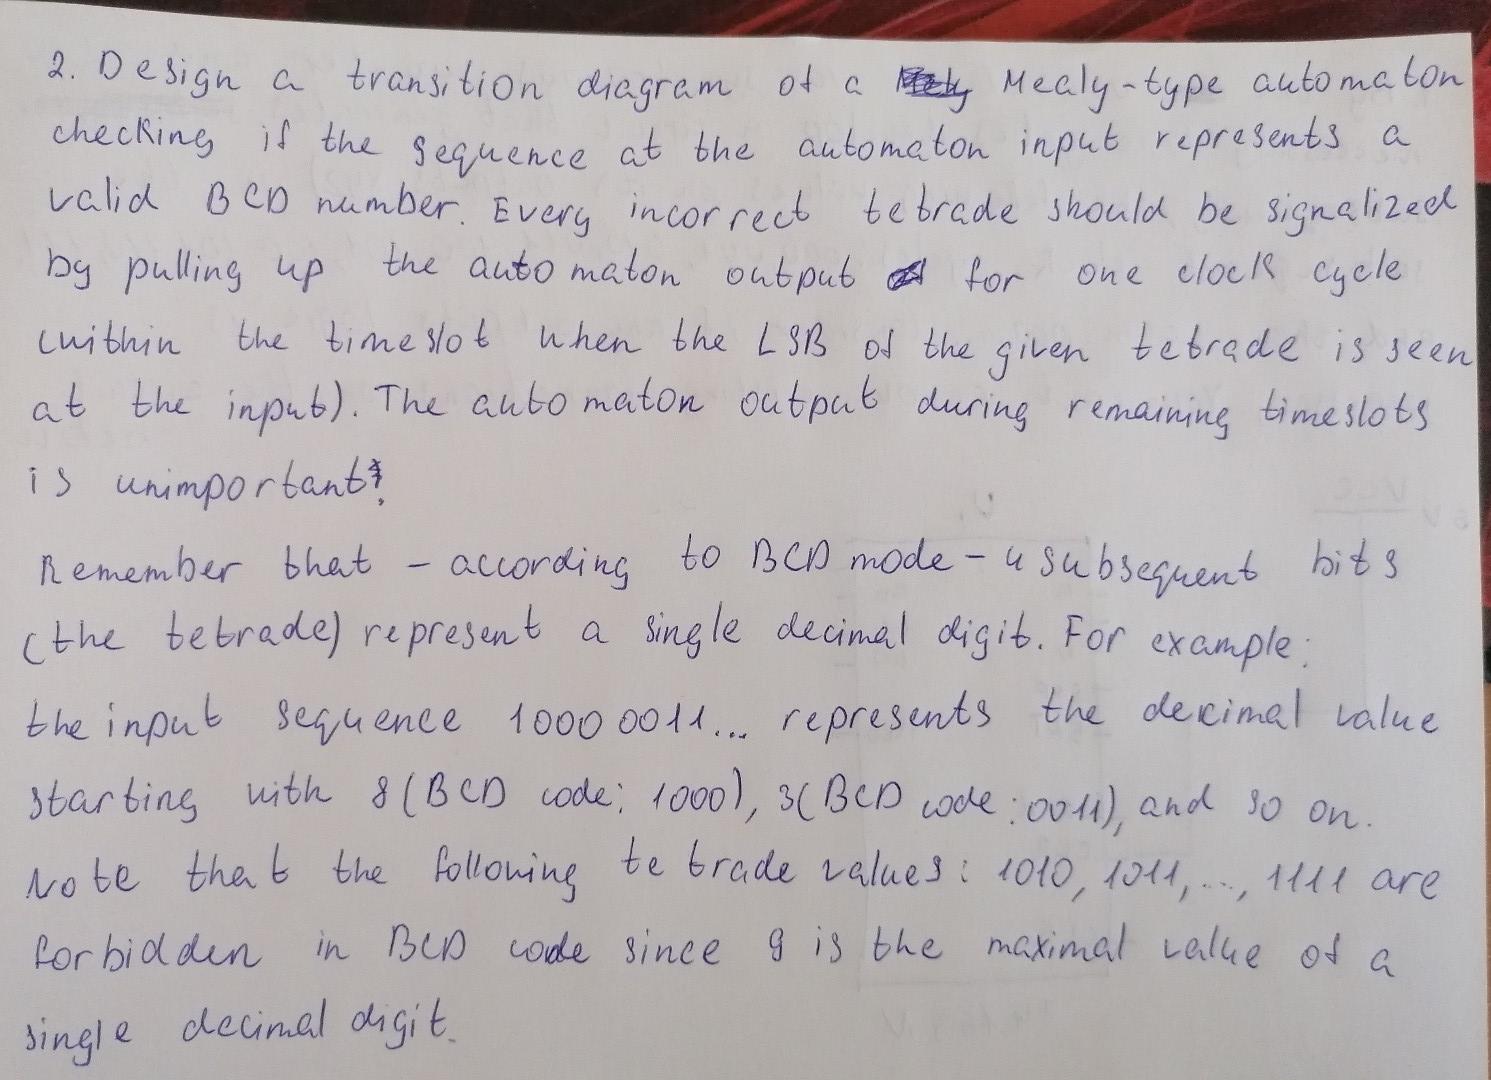 2. Design a transition diagram of a Mealy-type automaton
checking if the sequence at the automaton input represents a
valid BCD number. Every incorrect tetrade should be signalized
by pulling up the automaton output for one clock cycle
(within the timeslot when the LSB of the given tetrade is seen
at the input). The automaton output during remaining timeslots
is unimportant!
Remember that - according to BCD mode - 4 subsequent bits
(the tetrade) represent a single decimal digit. For example:
the input sequence 1000 0011... represents the decimal value
starting with 8 (BCD code: 1000), 3 (BCD code: 0011), and so on.
Note that the following tetrade values: 1010, 1011, ..., 1111 are
forbidden in BCD code since 9 is the maximal value of a
single decimal digit.